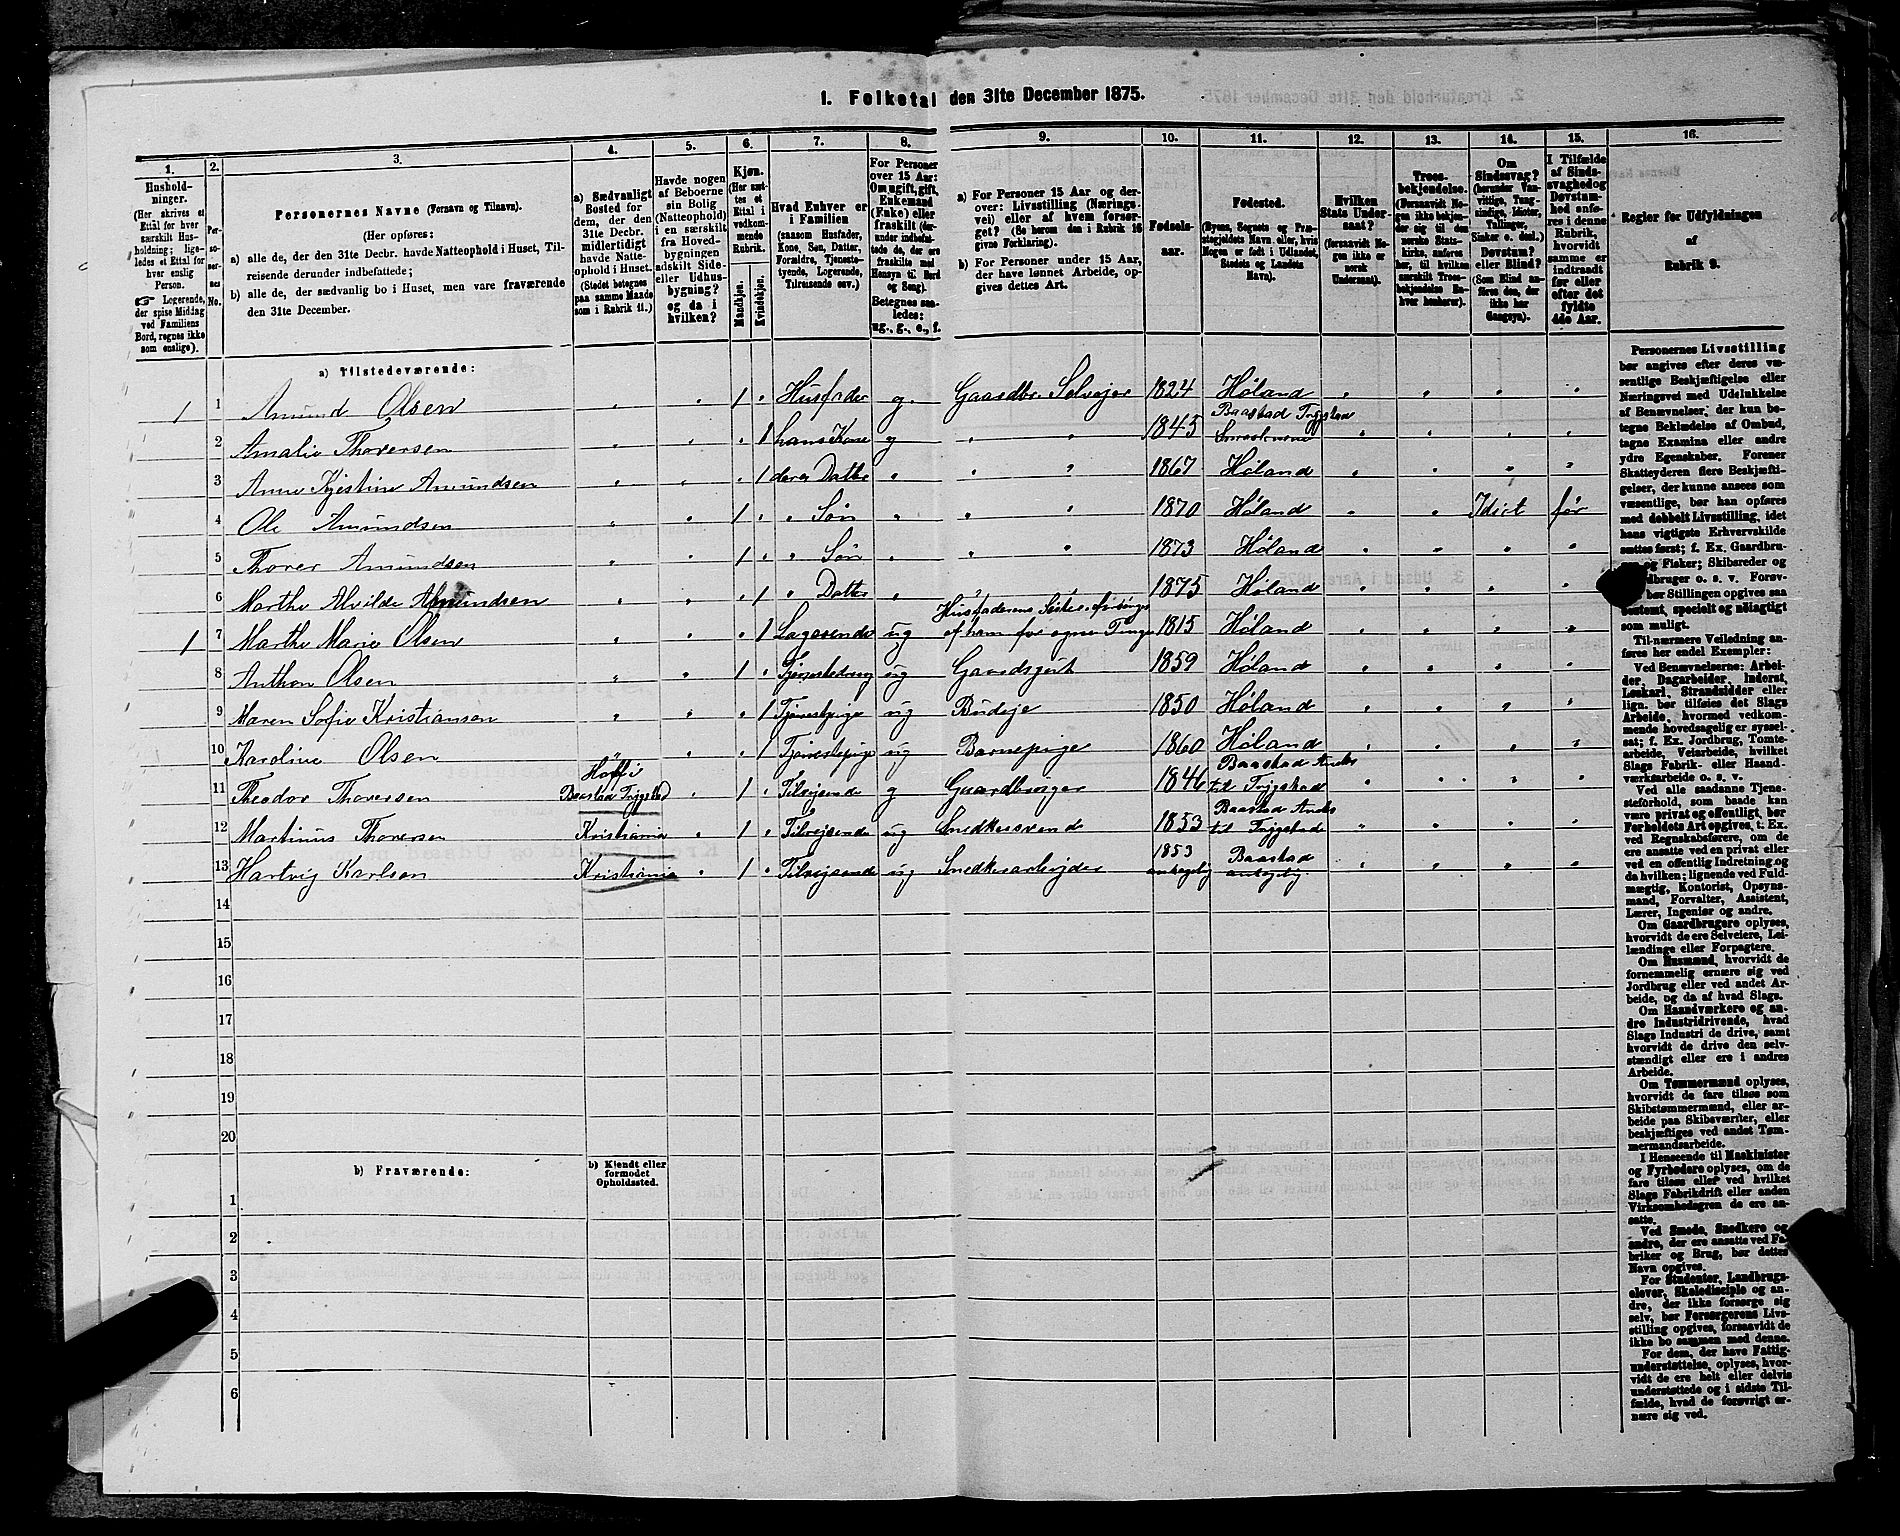 1. Folketal den 31te December 1875.
1. 2. 3. 4. 5. 6. 7. 8. 9. 10. 11. 12. 13. 14. 15. 16.
Hushold-
ninger.
(Her skrives et
Ettal for hver
særskilt Hus-
holdning; lige-
ledes et Ettal for
hver enslig
Person.
☞ Logerende,
der spise Middag
ved Familiens
Bord, regnes ikke
som enslige).
Per-
so-
ner-
nes
No.
Personernes Navne (Fornavn og Tilnavn).
(Her opføres:
a) alle de, der den 31te Decbr. havde Natteophold i Huset, Til-
reisende derunder indbefattede;
b) alle de, der sædvanlig bo i Huset, men vare fraværende
den 31te December.
a) Sædvanligt
Bosted for
dem, der den
31te Decbr.
midlertidigt
havde Natte-
ophold i Huset.
(Stedet betegnes
paa samme Maade
som i Rubrik 11.)
Havde nogen
af Beboerne
sin Bolig
(Natteophold)
i en særskilt
fra Hoved-
bygningen
adskilt Side-
eller Udhus-
bygning?
og da i
hvilken?
Kjøn.
(Her sæt-
tes et
Ettal i
vedkom-
mende
Rubrik.
Mandkjøn.
Kvindekjøn.
Hvad Enhver er
i Familien
(saasom Husfader,
Kone, Søn, Datter,
Forældre, Tjeneste-
tyende, Logerende,
Tilreisende osv.)
For Personer
over 15 Aar:
Om ugift, gift,
Enkemand
(Enke) eller
fraskilt (der-
under indbefat-
tede de, der ere
fraskilte med
Hensyn til Bord
og Seng).
Betegnes saa-
ledes:
ug., g., e., f.
a) For Personer 15 Aar og der-
over: Livsstilling (Nærings-
vei) eller af hvem forsør-
get? (Se herom den i Rubrik 16
givne Forklaring).
b) For Personer under 15 Aar,
der have lønnet Arbeide, op-
gives dettes Art.
Fødsels-
aar.
Fødested.
(Byens, Sognets og Præ-
stegjeldets Navn, eller, hvis
Nogen er født i Udlandet,
Stedets og Landets
Navn).
Hvilken
Stats Under-
saat?
(forsaavidt No-
gen ikke er
norsk
Undersaat).
Troes-
bekjendelse.
(Forsaavidt No-
gen ikke bekjen-
der sig til den
norske Stats-
kirke, anføres
her, til hvilken
særskilt Troes-
bekjendelse En-
hver henhører).
Om
Sindssvag?
(herunder Van-
vittige, Tung-
sindige, Idioter,
Tullinger,
Sinker o. desl.)
Døvstum?
eller Blind?
(Som Blind an-
føres den, der
ikke har
Gangsyn).
I Tilfælde
af Sinds-
svaghed og
Døvstum-
hed anfø-
res i denne
Rubrik,
hvorvidt
samme er
indtraadt
før eller
efter det
fyldte
4de Aar.
Regler for Udfyldningen
af
Rubrik 9.
a) Tilstedeværende:
1 1 Amund Olsen " " 1 " Husfader g. Gaardbr. Selveier 1824 Høland " " " "
2 Amalie Thoresen " " " 1 hans Kone g " " 1845 Baastad Trygstad Smaalenene " " " "
3 Anne Kjestine Amundsen " " " 1 deres Datter " " " 1867 Høland " " " "
4 Ole Amundsen " " 1 " " Søn " " " 1870 Høland " " Idiot før
5 Thorer Amundsen " " 1 " " Søn " " " 1873 Høland " " " "
6 Marthe Alvilde Amundsen " " " 1 " Datter " " " 1875 Høland " " " "
1 7 Marthe Marie Olsen " " " 1 Logerende ug Husfaderens Søster, forsørges af ham for egne Penge 1815 Høland " " " "
8 Anthon Olsen " " 1 " Tjenestedreng ug Gaardsgut 1859 Høland " " " "
9 Maren Sofie Kristiansen " " " 1 Tjenestepige ug Budeje 1850 Høland " " " "
10 Karoline Olsen " " " 1 Tjenestepige ug Barnepige 1860 Høland " " " "
11 Theodor Thoresen Baastad Trygstad " 1 " Tilrejsende g Gaardbruger 1846 Baastad Anex til Trygstad " " " "
12 Martinus Thoresen Kristiania " 1 " Tilrejsende ug Snedkersvend 1853 Baastad Anex til Trygstad " " " "
13 Hartvig Karlsen Kristiania " 1 " Tilrejsende ug Snedkerarbejder 1853 antagelig Baastad antagelig " " " "
14
15
16
17
18
19
20
b) Fraværende:
b) Kjendt eller
formodet
Opholdssted.
1
2
3
4
5
6
Personernes Livsstilling
bør angives efter deres væ-
sentlige Beskjæftigelse eller
Næringsvei med Udelukkelse
af Benævnelser, der kun be-
tegne Beklædelse af Ombud,
tagne Examina eller andre
ydre Egenskaber. Forener
Skatteyderen flere Beskjæfti-
gelser, der kunne ansees som
væsentlige, bør han opføres
med dobbelt Livsstilling, idet
hans vigtigste Erhvervskilde
sættes først; f. Ex. Gaardbru-
og Fisker; Skibsreder og
dbruger o. s. v. Forøv-
bør Stillingen opgives saa
bestemt, specielt og nøiagtigt
som muligt.
Til nærmere Veiledning an-
føres her endel Exempler:
Ved Benævnelserne: Arbei-
der, Dagarbeider, Inderst,
Løskarl, Strandsidder eller
lign. bør tilføies det Slags
Arbeide, hvormed vedkom-
mende hovedsagelig er syssel-
sat; f. Ex. Jordbrug, Tomte-
arbeide, Veiarbeide, hvilket
Slags Fabrik- eller Haand-
værksarbeide o. s. v.
Ved alle saadanne Tjene-
steforhold, som baade kan
være privat og offentligt, bør
Forholdets Art opgives, t. Ex.
ved Regnskabsførere, om de
ere ansatte ved en privat eller
ved en offentlig Indretning og
da hvilken; lignende ved Fuld-
mægtig, Kontorist, Opsyns-
mand, Forvalter, Assistent,
Lærer, Ingeniør og andre.
Om Gaardbrugere oplyses,
hvorvidt de ere Selveiere, Lei-
lændinge eller Forpagtere.
Om Husmænd, hvorvidt de
fornemmelig ernære sig ved
Jordbrug eller ved andet Ar-
beide, og da af hvad Slags.
Om Haandværkere og an-
dre Industridrivende, hvad
Slags Industri de drive, samt
hvorvidt de drive den selv-
stændigt eller ere i andres
Arbeide.
Om Tømmermænd oplyses,
hvorvidt de fare tilsøs som
Skibstømmermænd, eller ar-
beide paa Skibsværfter, eller
beskjæftiges ved andet Tøm-
mermandsarbeide.
I Henseende til Maskinister
og Fyrbødere oplyses, om de
fare tilsøs eller ved hvilket
Slags Fabrikdrift eller anden
Virksomhedsgren de ere an-
satte.
Ved Smede, Snedkere og
andre, der ere ansatte ved Fa-
briker og Brug, bør dettes
Navn opgives.
For Studenter, Landbrugs-
elever, Skoledisciple og an-
dre, der ikke forsørge sig
selv, bør Forsørgerens Livs-
stilling opgives, forsaavidt de
ikke bo sammen med denne.
For dem, der have Fattig-
understøttelse, oplyses, hvor-
vidt de ere helt eller delvis
understøttede og i sidste Til-
fælde, hvad de forøvrigt er-
nære sig ved.